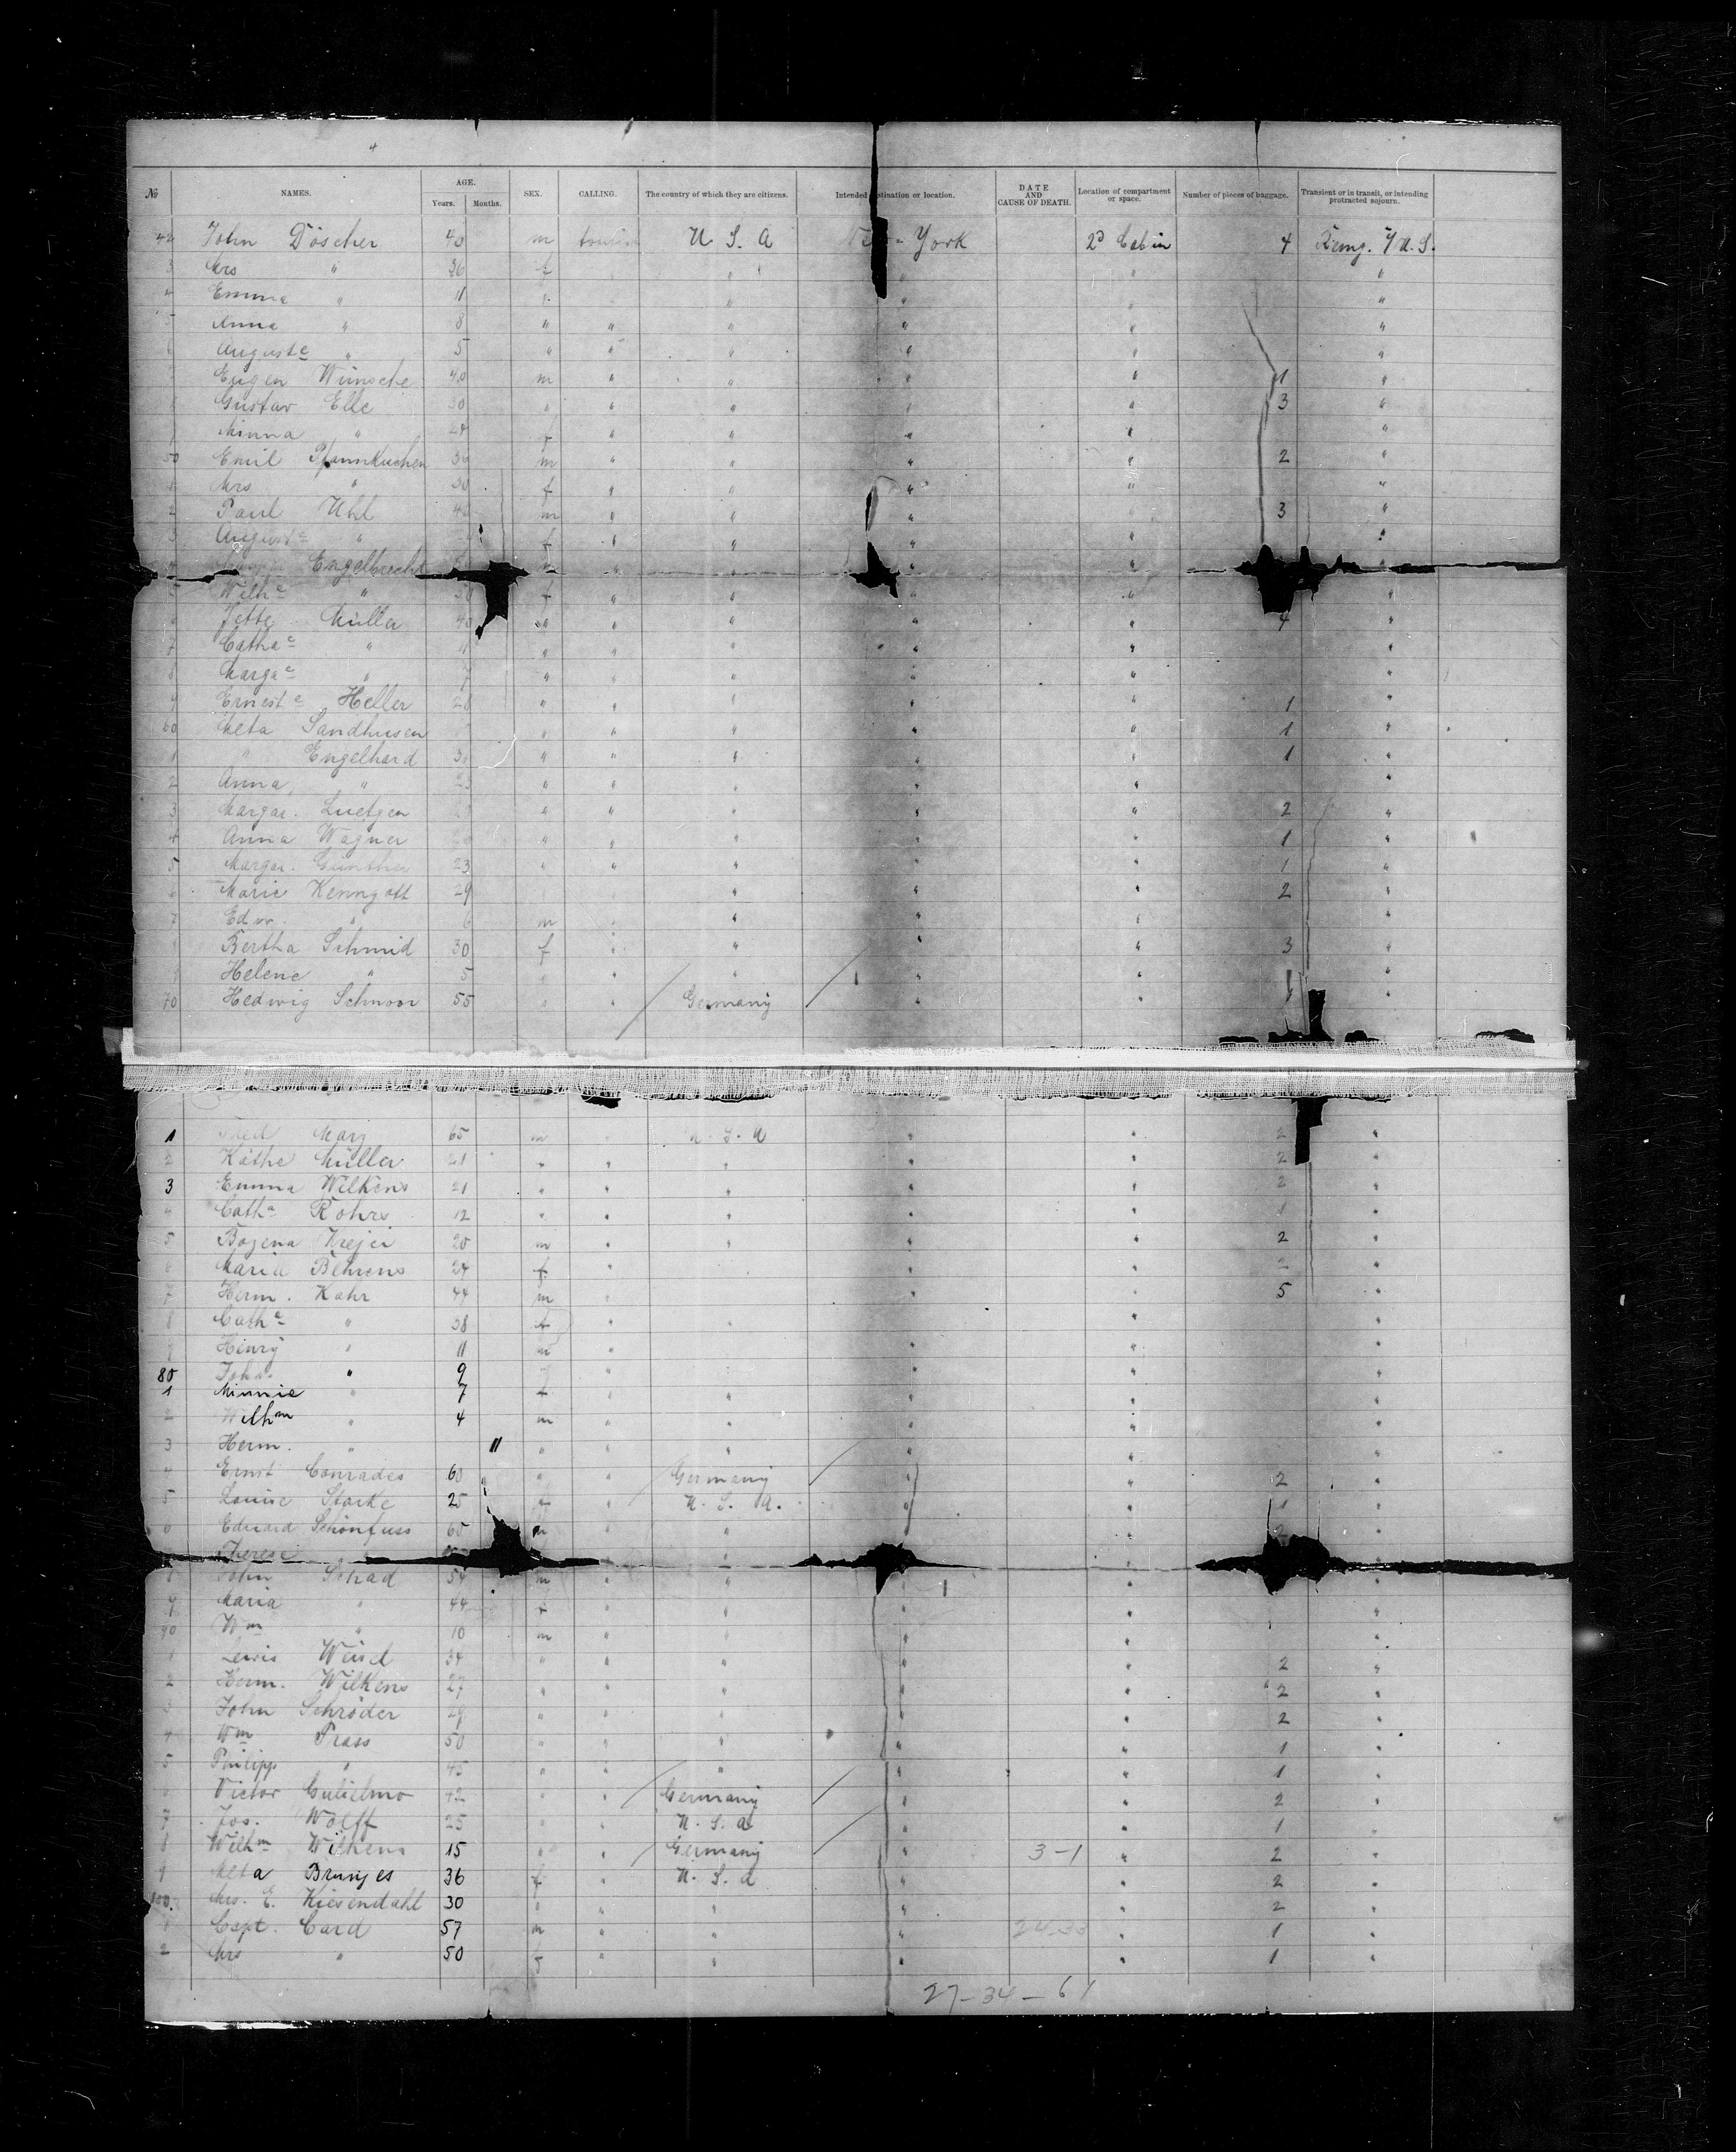 4
№ NAMES. AGE. Years. Months. SEX. CALLING. The country of which they are citizens. Intended destination or location. DATE AND CAUSE OF DEATH. Location of compartment or space. Number of pieces of baggage. Transient or in transit, or intending protracted sojourn.
42 John Döscher 40 m U. S. A New-York 2d Cabin 4
3 Mrs " 36 f " " " "
4 Emma " 11 " " " "
5 Anna " 8 " " " " " "
6 Auguste " 5 " " " " " "
7 Eugen Wünsche 40 m " " " " 1 "
8 Gustav Elle 30 " " " " " 3 "
9 Minna " 24 f " " " " "
50 Emil Pfannkuchen 36 m " " " " 2 "
1 Mrs " 30 f " " " " "
2 Paul Uhl 40 m " " " 3 "
3 Auguste " f " " " "
4 Engelbrecht " " " " "
5 Wilhe " f " " " "
6 Jette Müller 40 " " " " " 4 "
7 Cathae " 11 " " " " " "
8 Margae " 7 " " " " " "
9 Erneste Heller 28 " " " " " 1 "
60 Meta Sandhusen " " " " " 1 "
1 " Engelhard " " " " " 1 "
2 Anna " 23 " " " " " "
3 Margar. Luetgen " " " " " 2 "
4 Anna Wagner " " " " 1 "
5 Margar. Günther 23 " " " " 1 "
6 Marie Kenngott 29 " " " 2 "
7 Edw. " 6 m " " " "
8 Bertha Schmid 30 f " " " " 3 "
9 Helene " 5 " " " " "
70 Hedwig Schnoor 55 " " Germany " " 1 "
1 Mary 65 m U. S. A " " 2 "
2 Käthe Müller 21 " " " " " 2 "
3 Emma Wilkens 21 " " " " " 2 "
4 Catha Rohrs 12 " " " " " 1 "
5 Bozena Krejci 20 m " " " " 2 "
6 Maria Behrens 24 f " " " 2 "
7 Herm. Kahr 44 m " " " 5 "
8 Cathe " 38 f " " " "
9 Henry " 11 m " " " "
80 John " 9 " " " "
1 Minnie " 7 f " " " " "
2 Wilhm " 4 m " " " " "
3 Herm. " 11 " " " " " "
4 Ernst Conrades 60 " " Germany " " 2 "
5 Louise Starke 25 f " U. S. A. " " 1 "
6 Eduard Schönfuss 60 m " " " 2 "
Therese " " "
8 John Schad 54 m " " " "
9 Maria " 44 f " " " " "
90 Wm " 10 m " " " " "
1 Lewis 34 " " " " " 2 "
2 Herm. Wilkens 27 " " " " " 2 "
3 John Schröder 29 " " " " " 2 "
4 Wm Prass 50 " " " " " 1 "
5 Philipp " 45 " " " " " 1 "
6 Victor Gulielmo 42 " " Germany " " 2 "
7 Jos. Wolff 25 " " U. S. A " " 1 "
8 Wilhm Wilkens 15 " " Germany " 3-1 " 2 "
9 Meta Brunjes 36 f " U. S. A " " 2 "
100. Mrs. E. Kiesendahl 30 " " " " " 2 "
1 Capt. Card 57 m " " " " 1 "
2 Mrs " 50 f " " " " 1 "
27-34-61